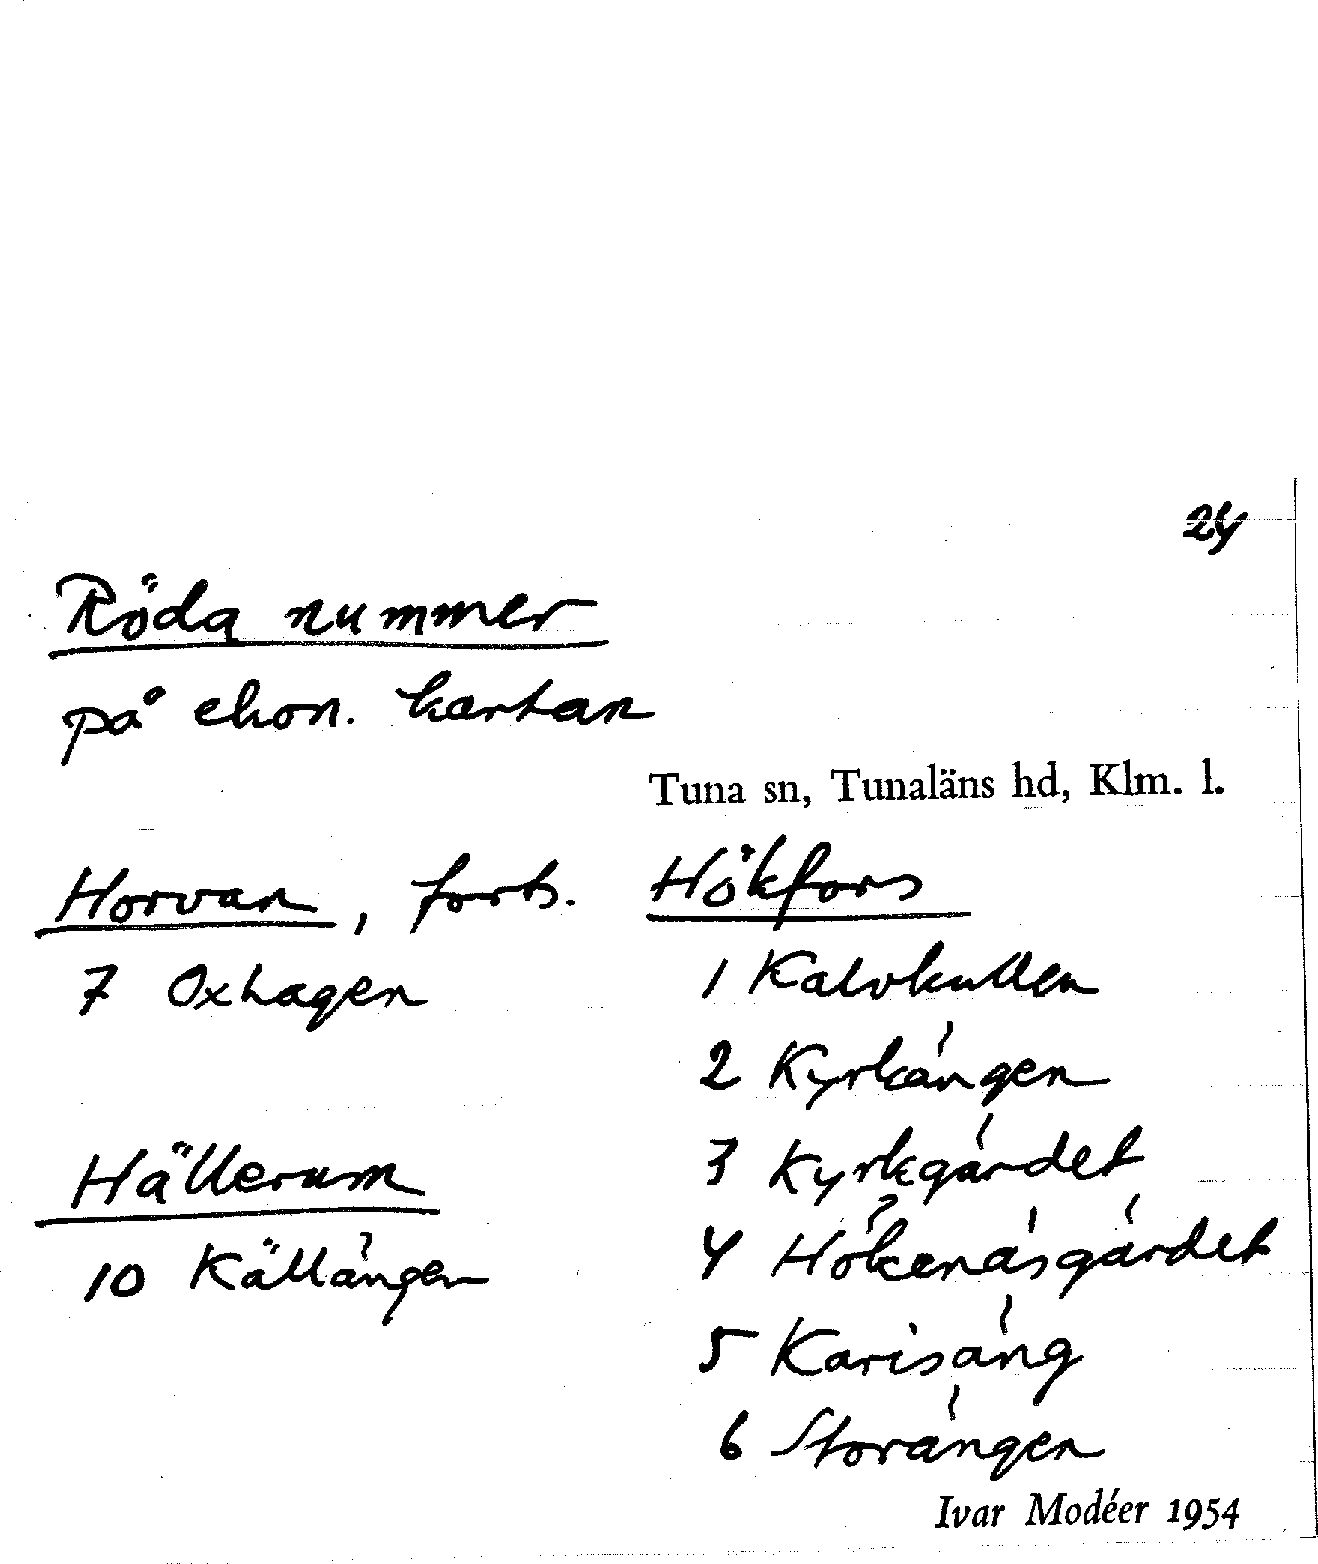 24
Röda nummer
på ekon. kartan
Tuna sn, Tunaläns hd, Klm. l.
Horvan, forts.
7 Oxhagen
Hällerum
10 Källängen
Hökfors
1 Kalvkullen
2 Kyrkängen
3 Kyrkgärdet
4 Hökenäsgärdet
5 Karisäng
6 Storängen
Ivar Modéer 1954